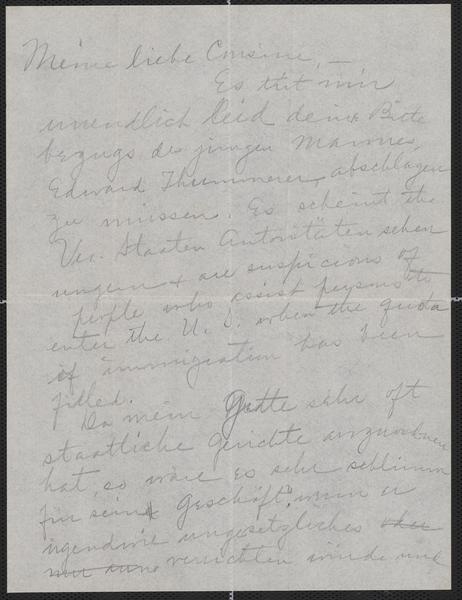 Meine liebe Cousine, —
Es tut mir
unendlich leid deine Bitte
bezugs des jungen Mannes,
Edward Thummerer, abschlagen
zu müssen. Es scheint the
Ver. Staaten Autoritäten sehen
ungern & are suspicious of
people who assist persons to
enter the U.S. when the quota
of immigration has been
filled.
Da mein Gatte sehr oft
staatliche Gerichte
hat, so wäre es sehr schlimm
für sein Geschäft wenn er
irgendwie ungesetzliches oder
verrichten würde und